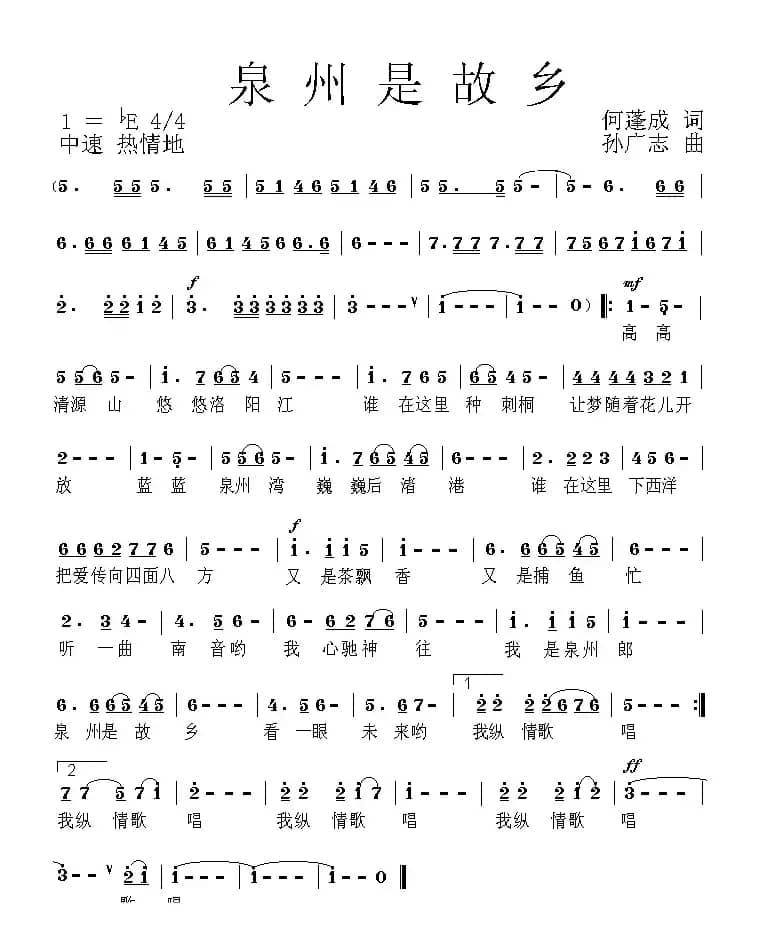 泉州是故乡
1 = ♭E 4/4 何蓬成 词
中速 热情地 孙广志 曲
(5. 5 5 5. 5 5 | 5 1 4 6 5 1 4 6 | 5. 5 5 5 - | 5 - 6. 6 6 |
6. 6 6 6 1 4 5 | 6 1 4 5 6 6. 6 | 6 - - - | 7. 7 7 7. 7 7 | 7 5 6 7 i 6 7 i |
f mf
2. 2 2 i 2 | 3. 3 3 3 3 3 3 | 3 - - - ∨ | i - - - | i - - 0) ‖: 1 - 5 - |
高 高
5 5 6 5 - | i. 7 6 5 4 | 5 - - - | i. 7 6 5 | 6 5 4 5 - | 4 4 4 4 4 3 2 1 |
清源 山 悠 悠洛 阳 江 谁 在这里 种 刺桐 让梦随着花儿开
2 - - - | 1 - 5 - | 5 5 6 5 - | i. 7 6 5 4 5 | 6 - - - | 2. 2 2 3 | 4 5 6 - |
放 蓝 蓝 泉州 湾 巍 巍后 渚 港 谁 在这里 下西洋
f
6 6 6 2 7 7 6 | 5 - - - | i. i i 5 | i - - - | 6. 6 6 5 4 5 | 6 - - - |
把爱传向四面八 方 又 是茶飘 香 又 是捕 鱼 忙
2. 3 4 - | 4. 5 6 - | 6 - 6 2 7 6 | 5 - - - | i. i i 5 | i - - - |
听 一曲 南 音哟 我 心驰神 往 我 是泉州 郎
1
6. 6 6 5 4 5 | 6 - - - | 4. 5 6 - | 5. 6 7 - | 2 2 2 2 6 7 6 | 5 - - - :‖
泉 州是 故 乡 看 一眼 未 来哟 我纵 情歌 唱
2 ff
7 7 5 7 i | 2 - - - | 2 2 2 i 7 | 2 - - - | 2 2 2 i 2 | 3 - - -
我纵 情歌 唱 我纵 情歌 唱 我纵 情歌 唱
3 - - ∨ 2 i | i - - - | i - - - | i - - 0 ‖
歌 唱